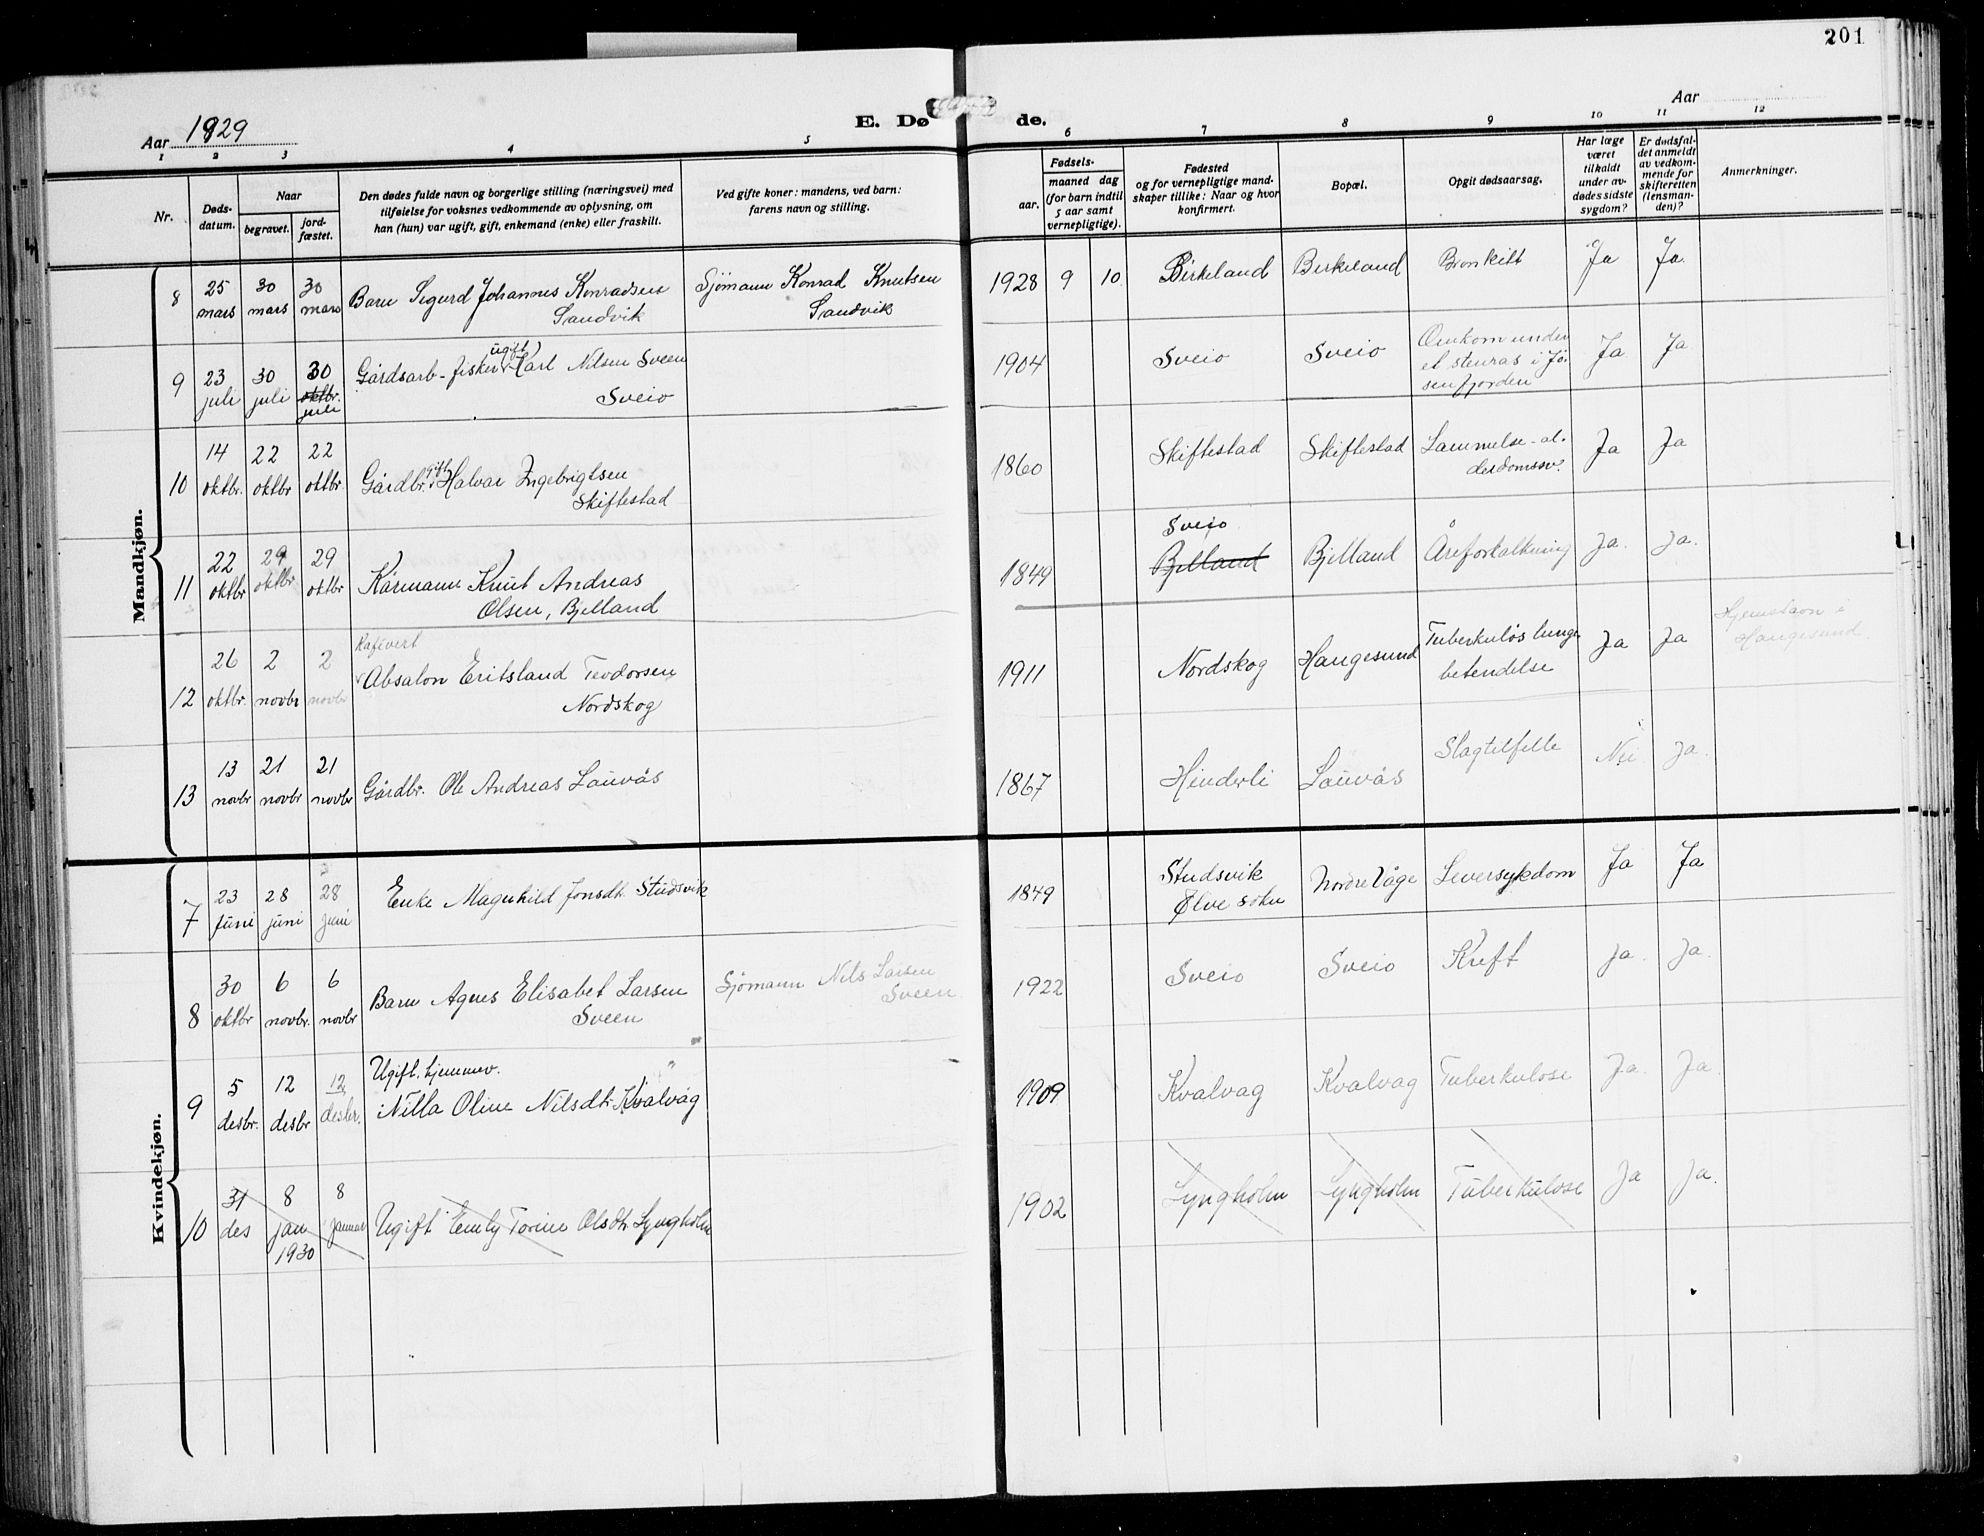 201
Aar 1929
E. Dø de.
Aar
1 2 3 4 5 6 7 8 9 10 11 12
Nr.
Døds-
datum.
Naar
begravet.
jord-
fæstet.
Den dødes fulde navn og borgerlige stilling (næringsvei) med
tilføielse for voksnes vedkommende av oplysning, om
han (hun) var ugift, gift, enkemand (enke) eller fraskilt.
Ved gifte koner: mandens, ved barn:
farens navn og stilling.
Fødsels-
aar.
maaned dag
(for barn indtil
5 aar samt
vernepligtige).
Fødested
og for vernepligtige mand-
skaper tillike: Naar og hvor
konfirmert.
Bopæl.
Opgit dødsaarsag.
Har læge
været
tilkaldt
under av-
dødes sidste
sygdom?
Er dødsfal-
det anmeldt
av vedkom-
mende for
skifteretten
(lensman-
den)?
Anmerkninger.
Mandkjøn.
8 25 mars 30 mars 30 mars Barn Sigurd Johannes Konradsen Sjømann Konrad Knutsen 1928 9 10 Birkeland Birkeland Bronkilt Ja Ja
Sandvik Sandvik
9 23 juli 30 juli 30 oktbr. juli Gårdsarb-fisker ugift Karl Nilsen Sveen 1904 Sveio Sveio Omkom under Ja Ja
Sveio et stenras i Jø-
senfjorden
10 14 oktbr. 22 oktbr 22 oktbr Gårdbr. gift Halvar Ingebrigtsen 1860 Skiftestad Skiftestad Lammelse-al- Ja Ja
Skiftestad derdomssv.
11 22 oktbr 29 oktbr 29 oktbr Kårmann Knut Andreas 1849 Sveio Bjelland Bjelland Åreforkalkning Ja. Ja.
Olsen, Bjelland
Kafivert
12 26 oktbr. 2 novbr 2 novbr Absalon Eritsland Teodorsen 1911 Nordskog Haugesund Tuberkuløs lunge Ja Ja Hjemstavn i
Nordskog betendelse Haugesund
13 13 novbr 21 novbr 21 novbr Gårdbr. Ole Andreas Lauvås 1867 Hinderli Lauvås Slagtilfelle Nei Ja.
Kvindekjøn.
7 23 juni 28 juni 28 juni Enke Magnhild Jonsdt. Studsvik 1849 Studsvik Nordre Våge Leversykdom Ja Ja
Ølve sokn
8 30 oktbr 6 novbr. 6 novbr Barn Agnes Elisabet Larsen Sjømann Nils Larsen 1922 Sveio Sveio Kreft Ja. Ja.
Sveen Sveen
Ugift. hjemmev.
9 5 desbr. 12 desbr 12 desbr. Nilla Oline Nilsdt. Kvalvåg 1909 Kvalvag Kvalvag Tuberkulose Ja. Ja.
10 31 des 8 jan 1930 8 januar Ugift Emly Torine Olsdtr Lyngholm 1902 Lyngholm Lyngholm Tuberkulose Ja Ja.